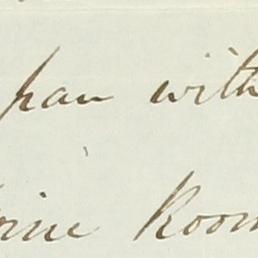 pan with
rine Room